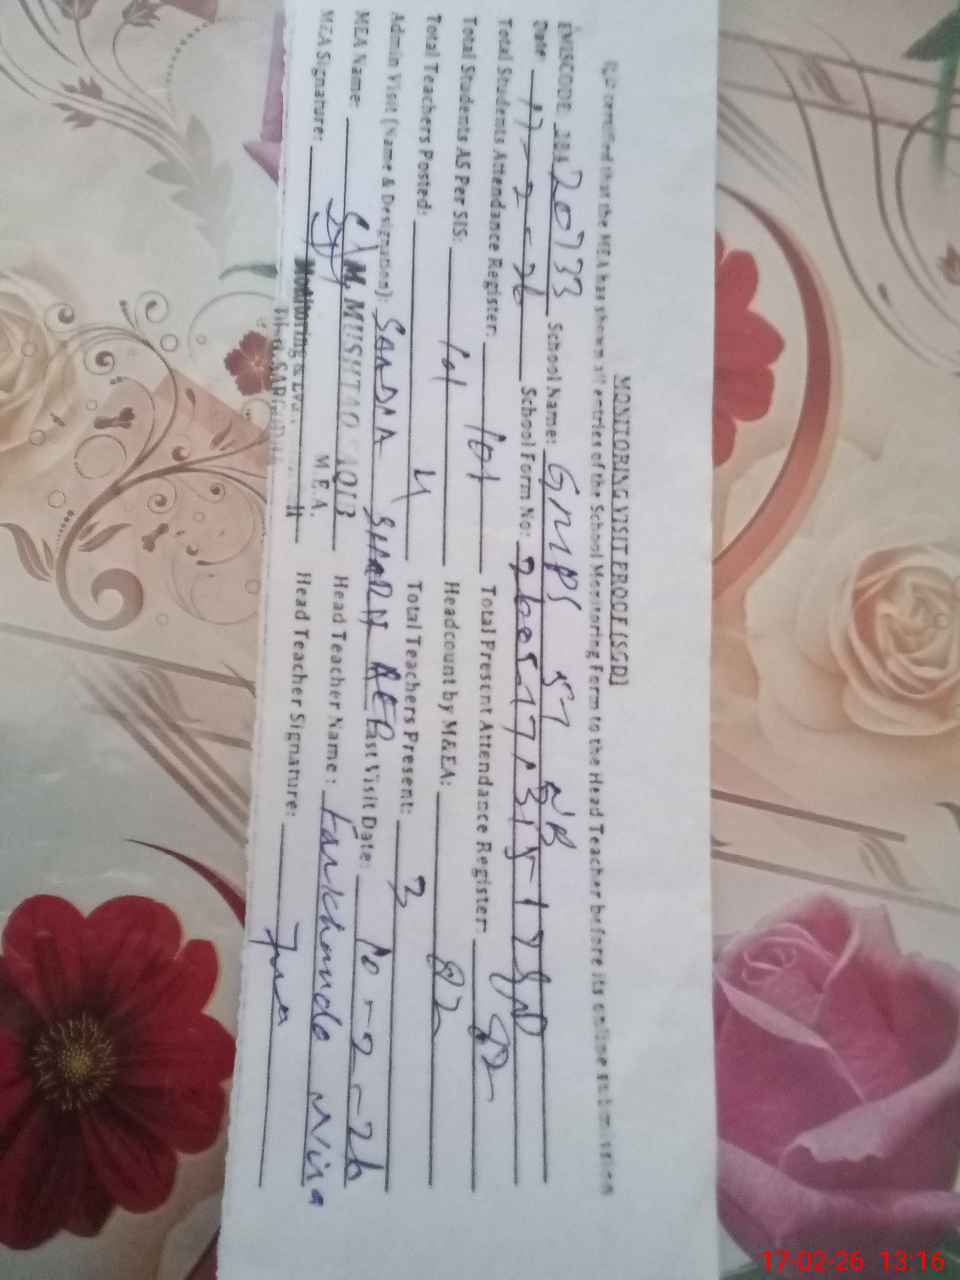 MONITORING VISIT PROOF (SGD)
It is certified that the MEA has shown all entries of the School Monitoring Form to the Head Teacher before its online submission
EMISCODE: 38420733 School Name: GMPS 57 NB
Date: 17-2-26 School Form No:
Total Students Attendance Register: 101 Total Present Attendance Register: 82
Total Students AS Per SIS: 101 Headcount by M&EA: 82
Total Teachers Posted: 4 Total Teachers Present: 3
Admin Visit (Name & Designation): SAADIA AEO Last Visit Date: 10-2-26
MEA Name: M. MUSHTAQ SAQIB Head Teacher Name: Farkhanda Nisa
M.E.A.
MEA Signature: Head Teacher Signature:
Monitoring &
17-02-26 13:16